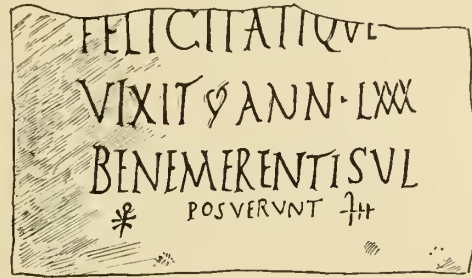 FELICITATIQVE
VIXIT ANN · LXXX
BENEMERENTISVL
POSVERVNT